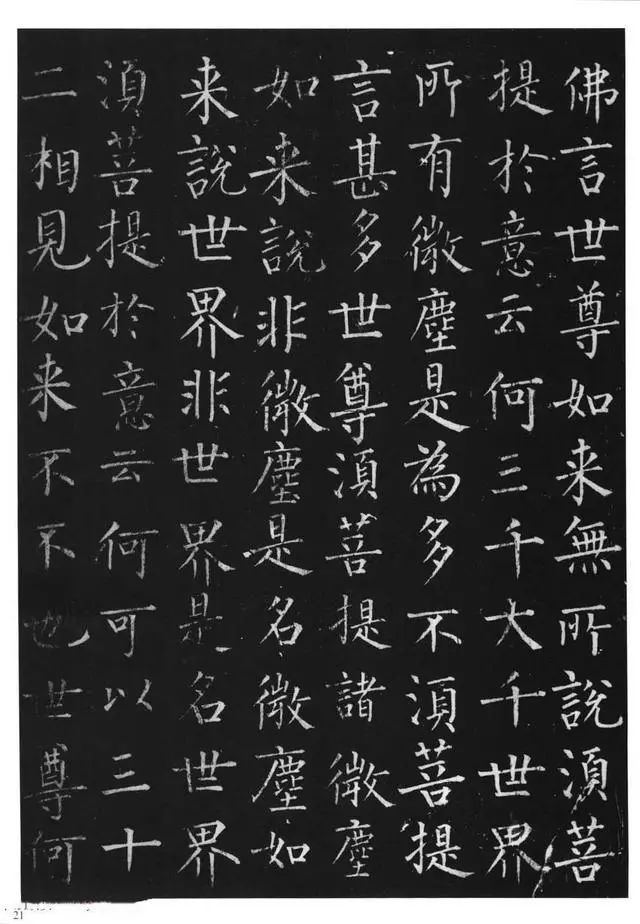 佛言世尊如来無所說須菩
提於意云何三千大千世界
所有微塵是為多不須菩提
言甚多世尊須菩提諸微塵
如来說非微塵是名微塵如
来說世界非世界是名世界
須菩提於意云何可以三十
二相見如来不不也世尊何
21